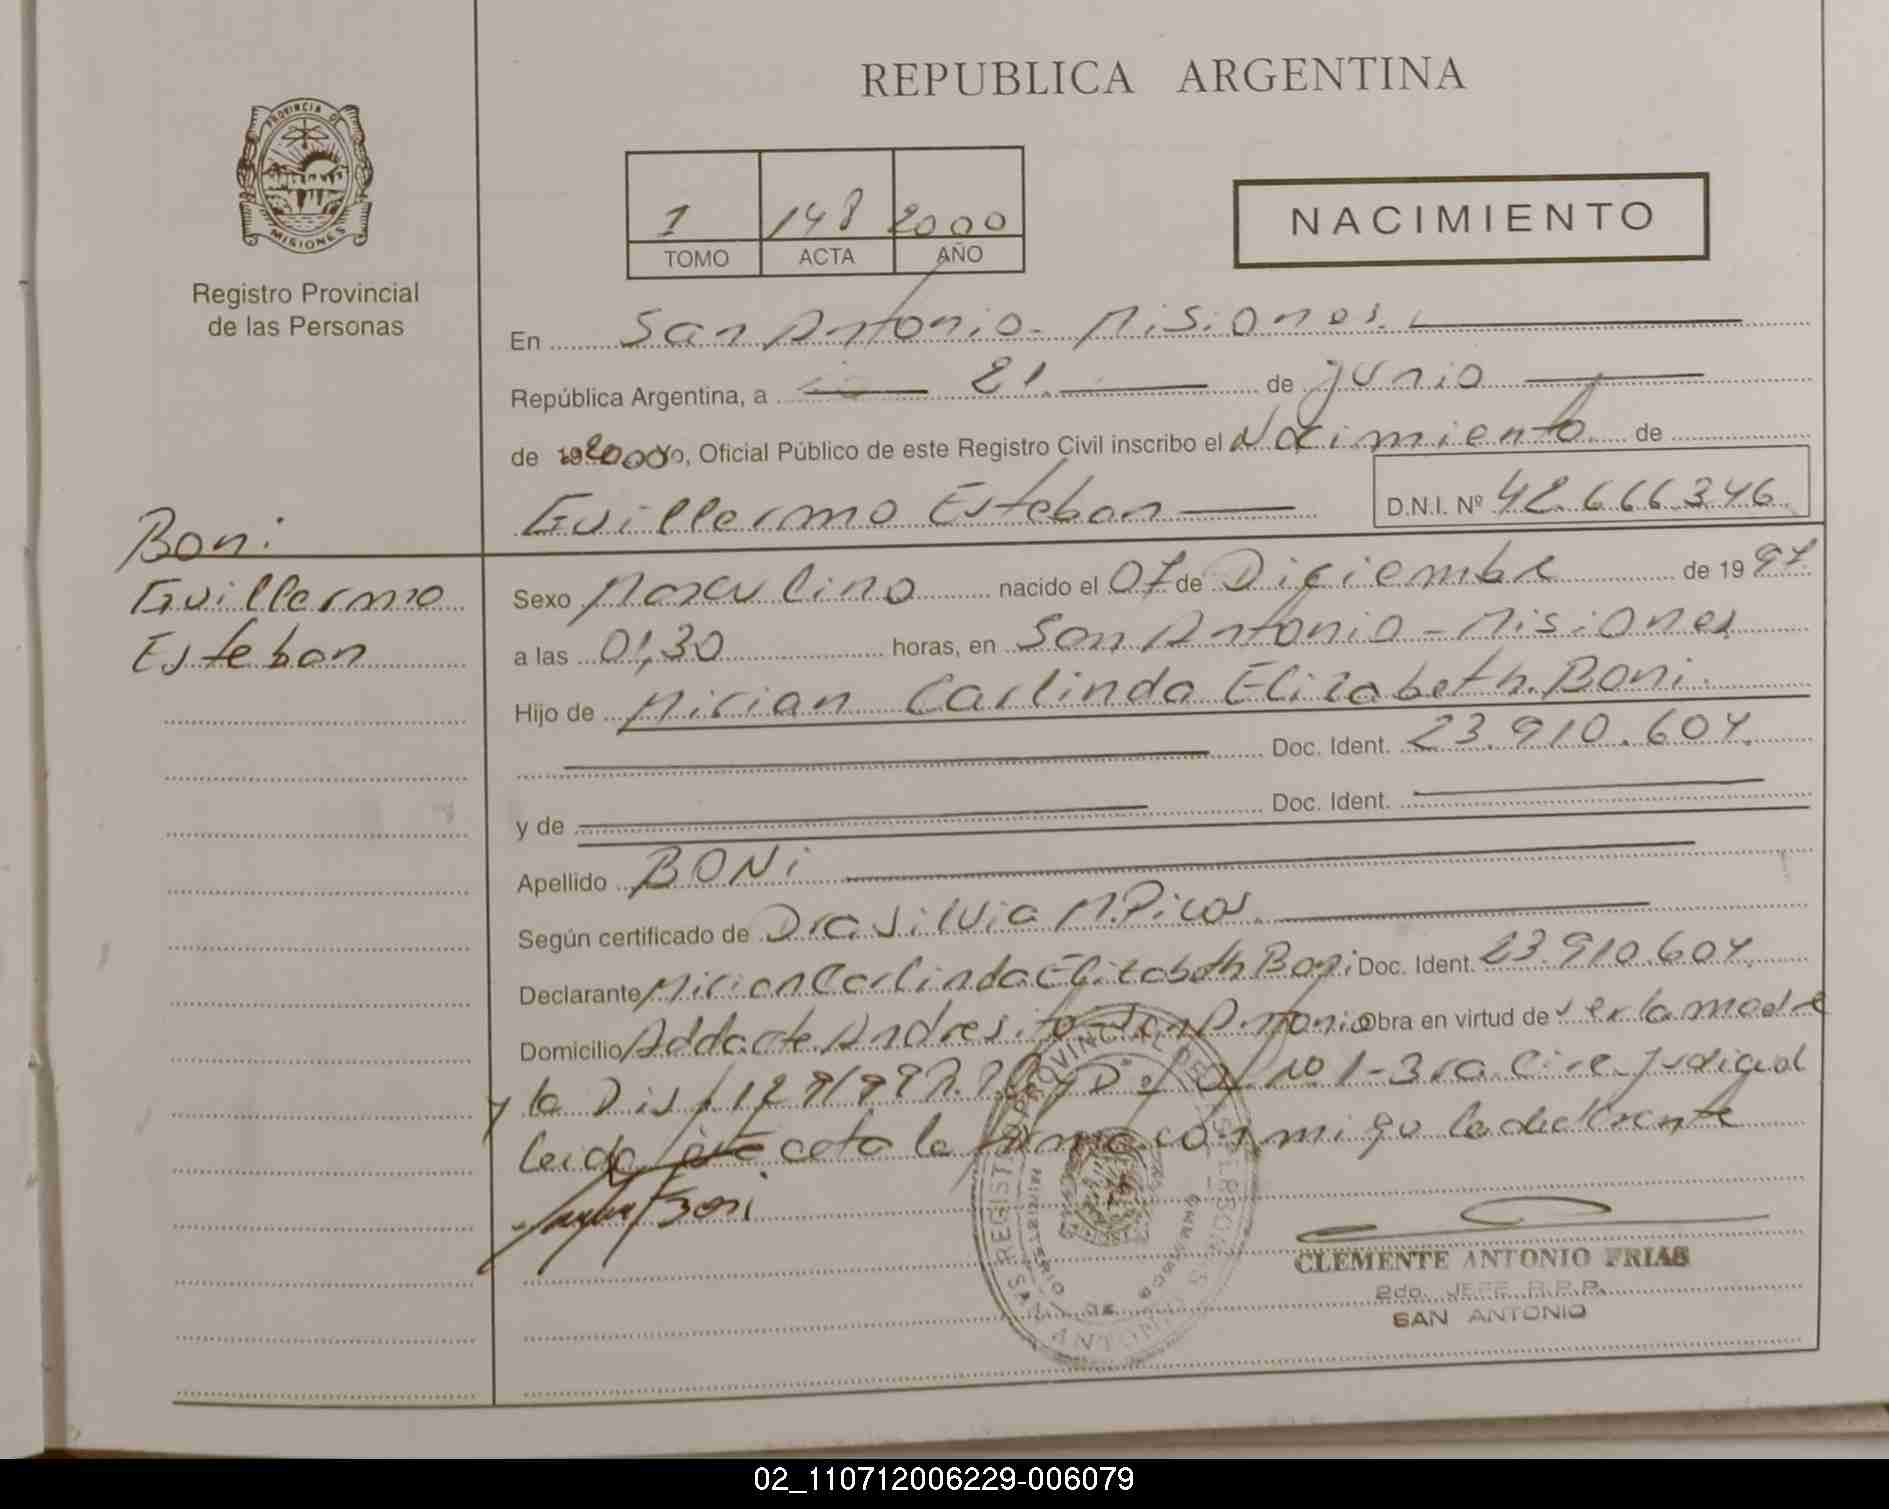 REPUBLICA ARGENTINA
PROVINCIA DE
MISIONES
Registro Provincial
de las Personas
1 148 2000
TOMO ACTA AÑO
NACIMIENTO
En San Antonio - Misiones.
República Argentina, a 21 de junio
de 2000, Oficial Público de este Registro Civil inscribo el Nacimiento de
Guillermo Esteban D.N.I. Nº 42.666.346
Boni
Guillermo
Esteban
Sexo Masculino nacido el 07 de Diciembre de 1997
a las 01,30 horas, en San Antonio - Misiones
Hijo de Mirian Carlinda Elizabeth Boni
Doc. Ident. 23.910.607
y de Doc. Ident.
Apellido BONi
Según certificado de Dra Silvia M. Picos
Declarante Mirian Carlinda Elizabeth Boni Doc. Ident. 23.910.607
Domicilio Andresito San Antonio Obra en virtud de ser la madre
y la 1-3ra Circ. Judicial
leida acta la firma conmigo la declarante
Boni
CLEMENTE ANTONIO FRIAS
2do. JEFE R.P.P.
SAN ANTONIO
02_110712006229-006079